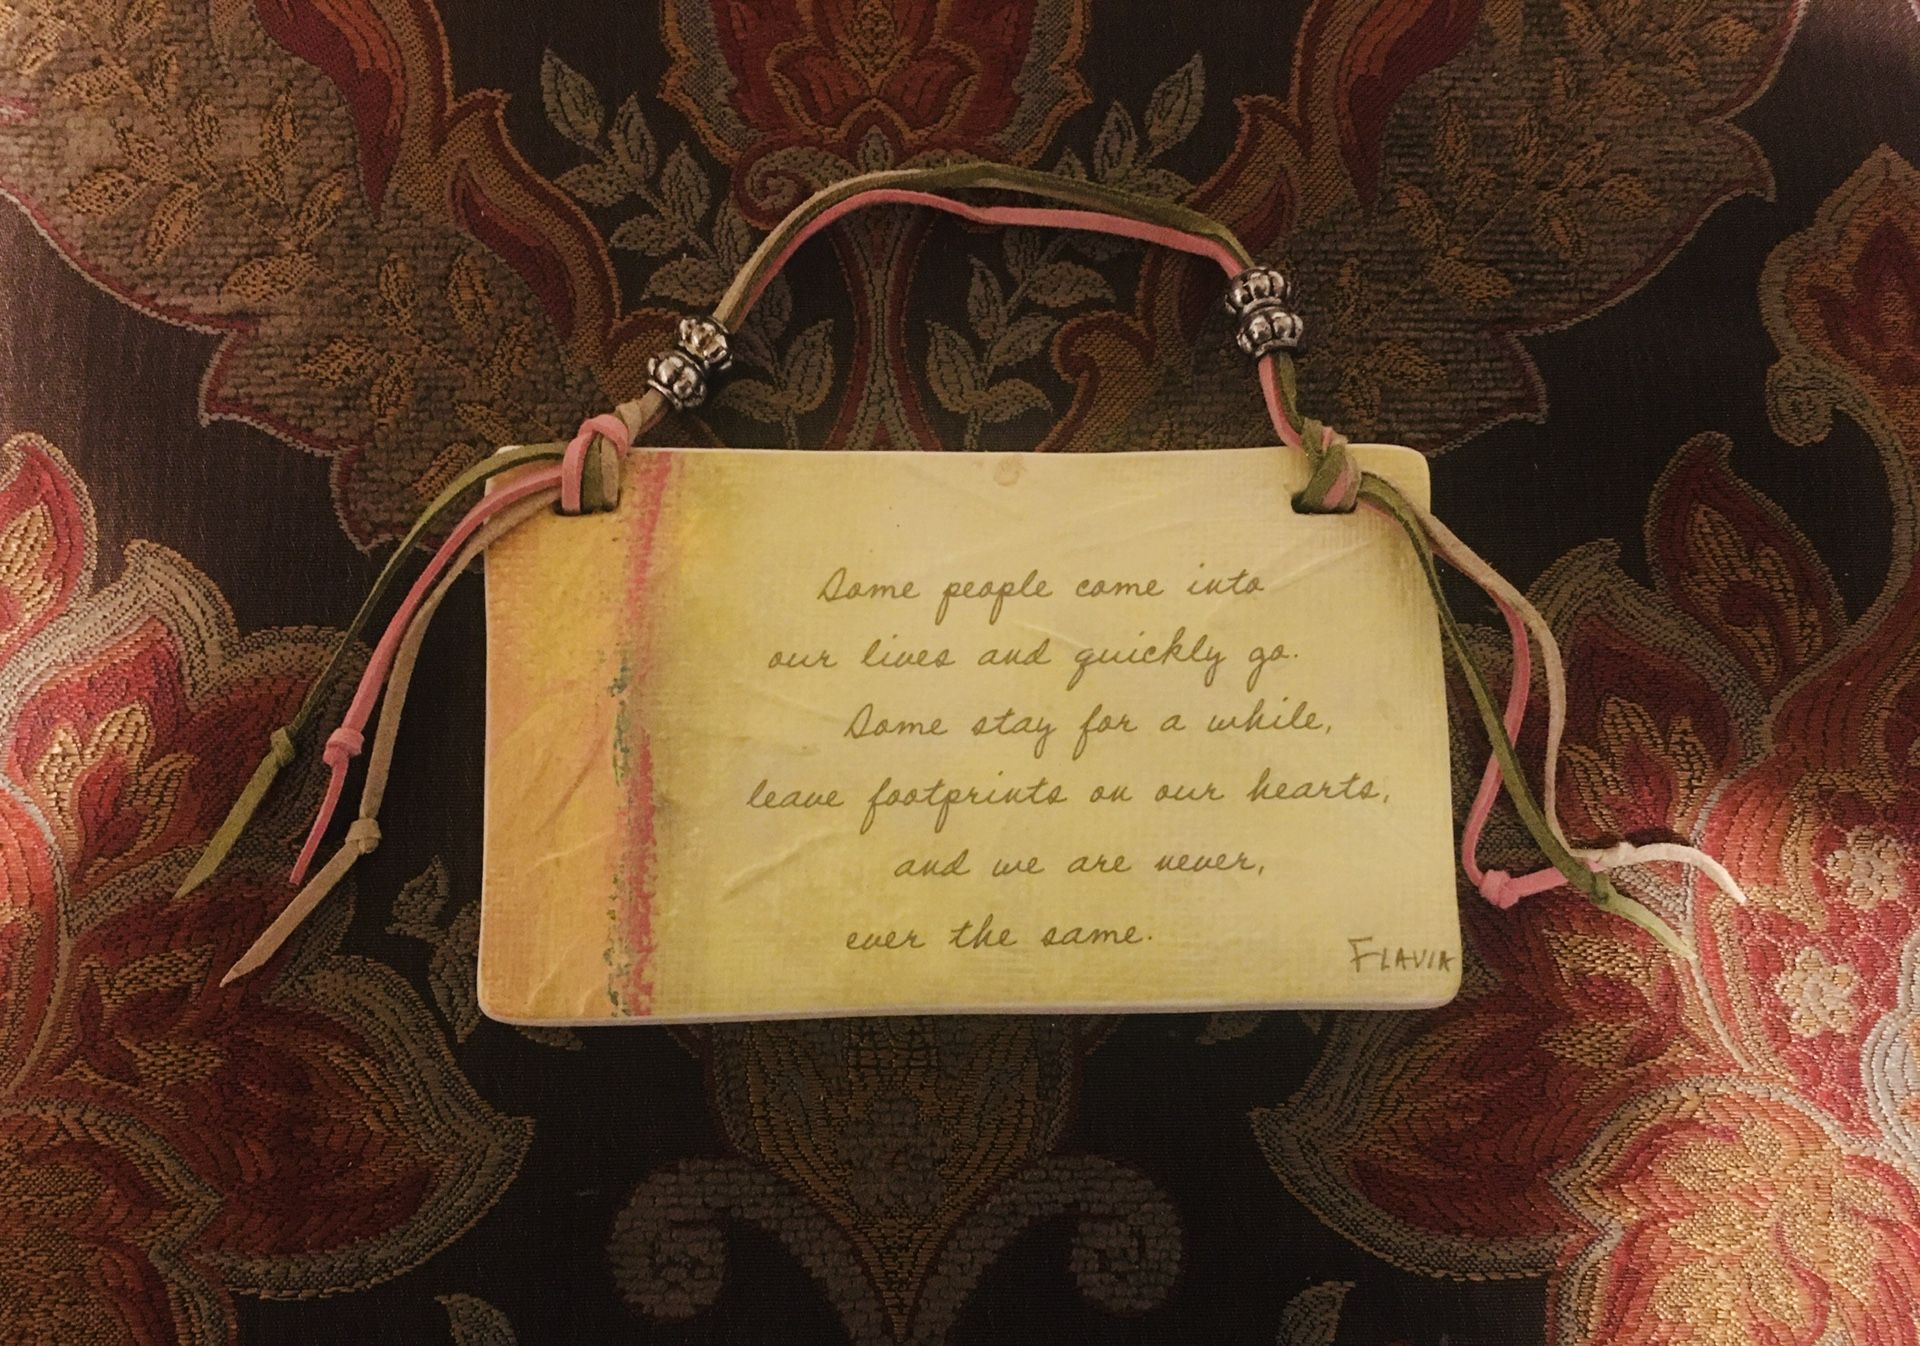 Some people come into
our lives and quickly go.
Some stay for a while,
leave footprints on our hearts,
and we are never,
ever the same.
FLAVIA